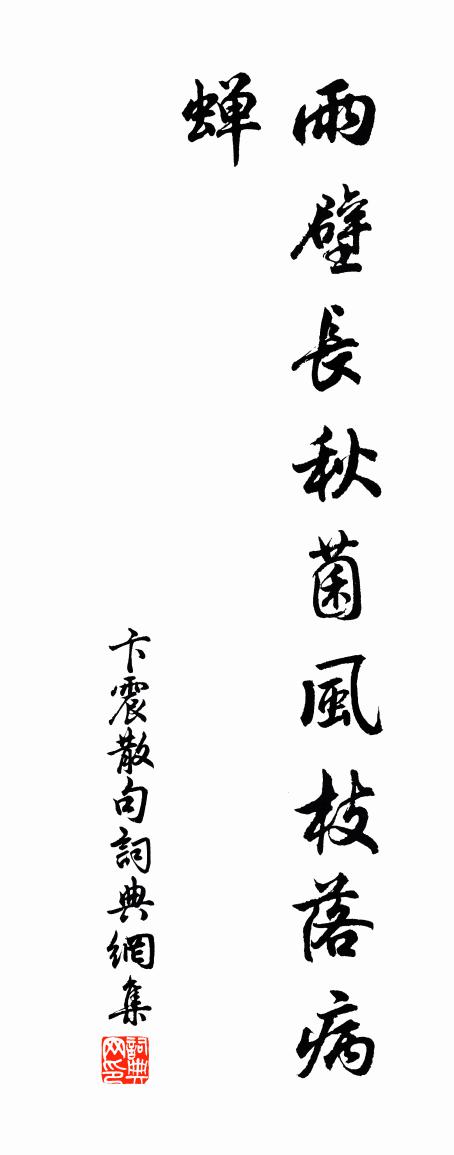 雨壁長秋菌風枝落病
蝉
卞震散句詞典網集
詞典网印